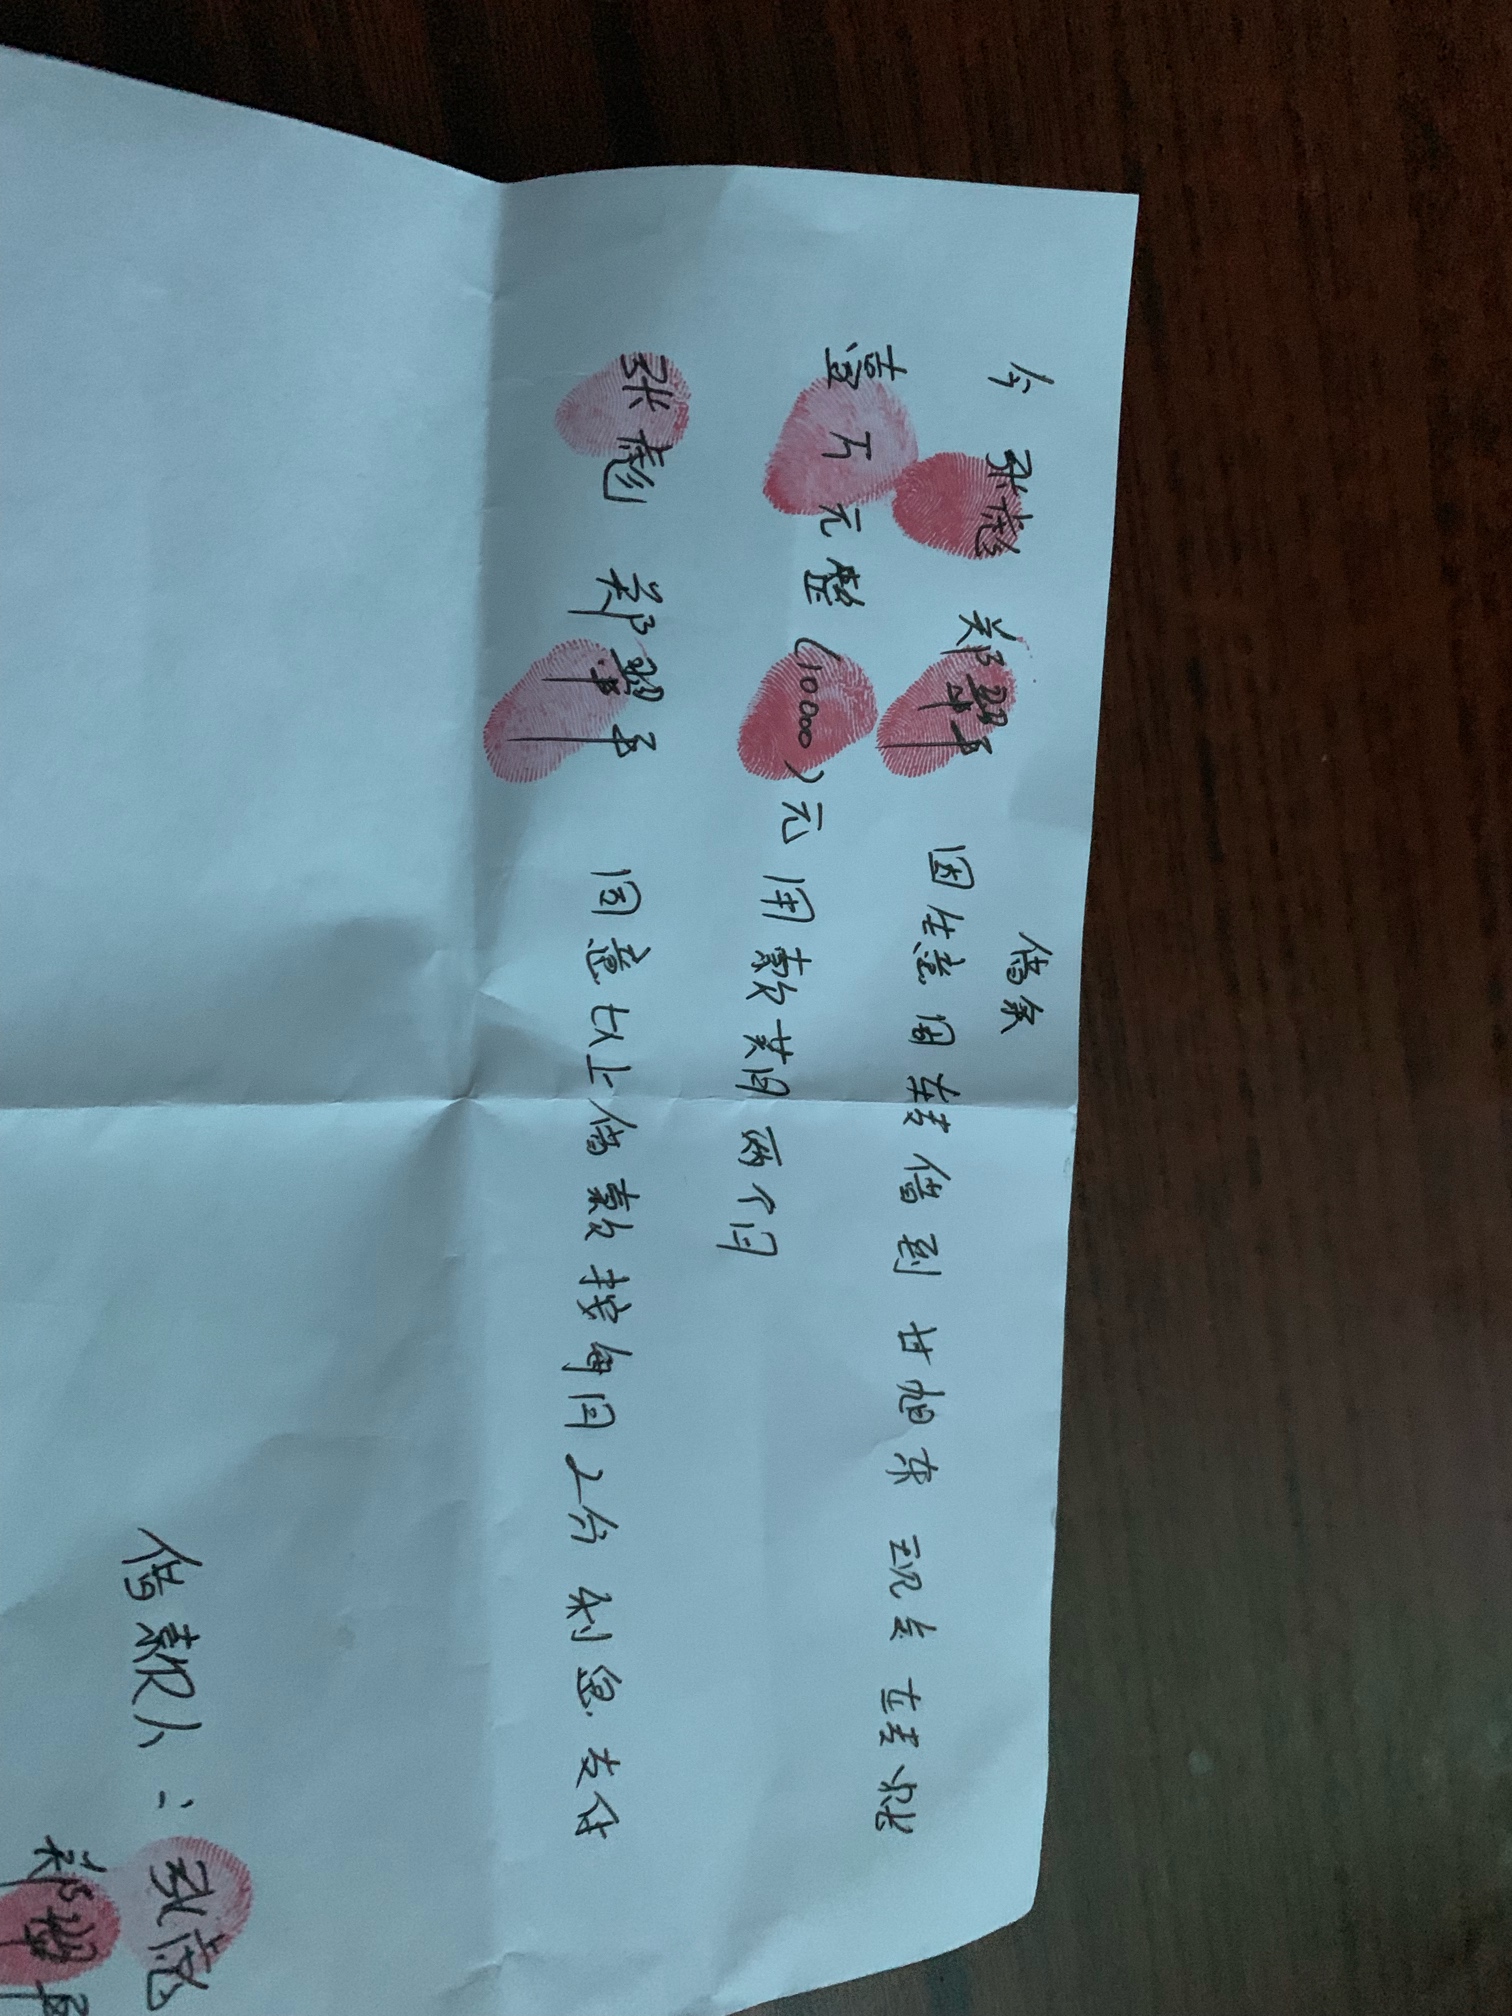 借条
今 张彪 郑翠平 因生意周转借到 甘旭东 现金 转账
壹万元整（10000）元用款期两个月
张彪 郑翠平 同意以上借款按每月2分利息支付
借款人：张彪
郑翠平